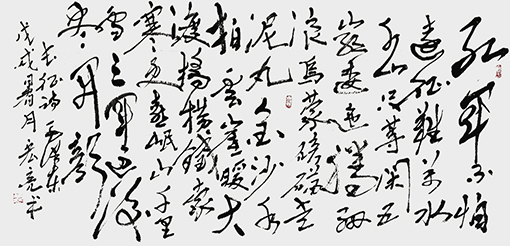 红军不怕
远征难万水
千山只等闲五
岭逶迤腾细
浪乌蒙磅礴走
泥丸金沙水
拍云崖暖大
渡桥横铁索
寒更喜岷山千里
雪三军过后
尽开颜
长征诗毛泽东
戊戌暑月亮书